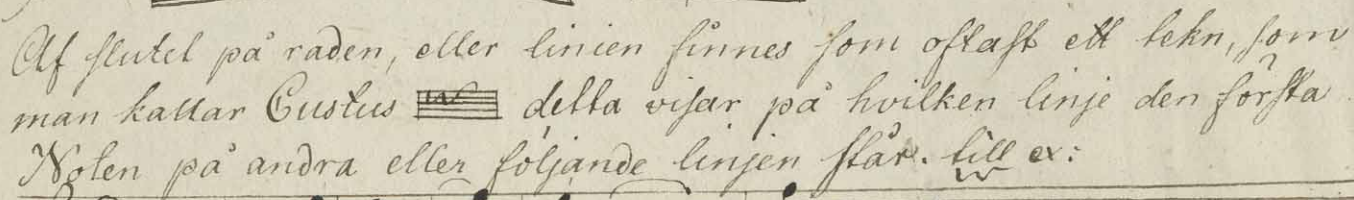 Af slutet på raden, eller linien finnes som oftast ett tekn, som
man kallar Custus detta visar på hvilken linje den första
Noten på andra eller följande linjen står. till ex: